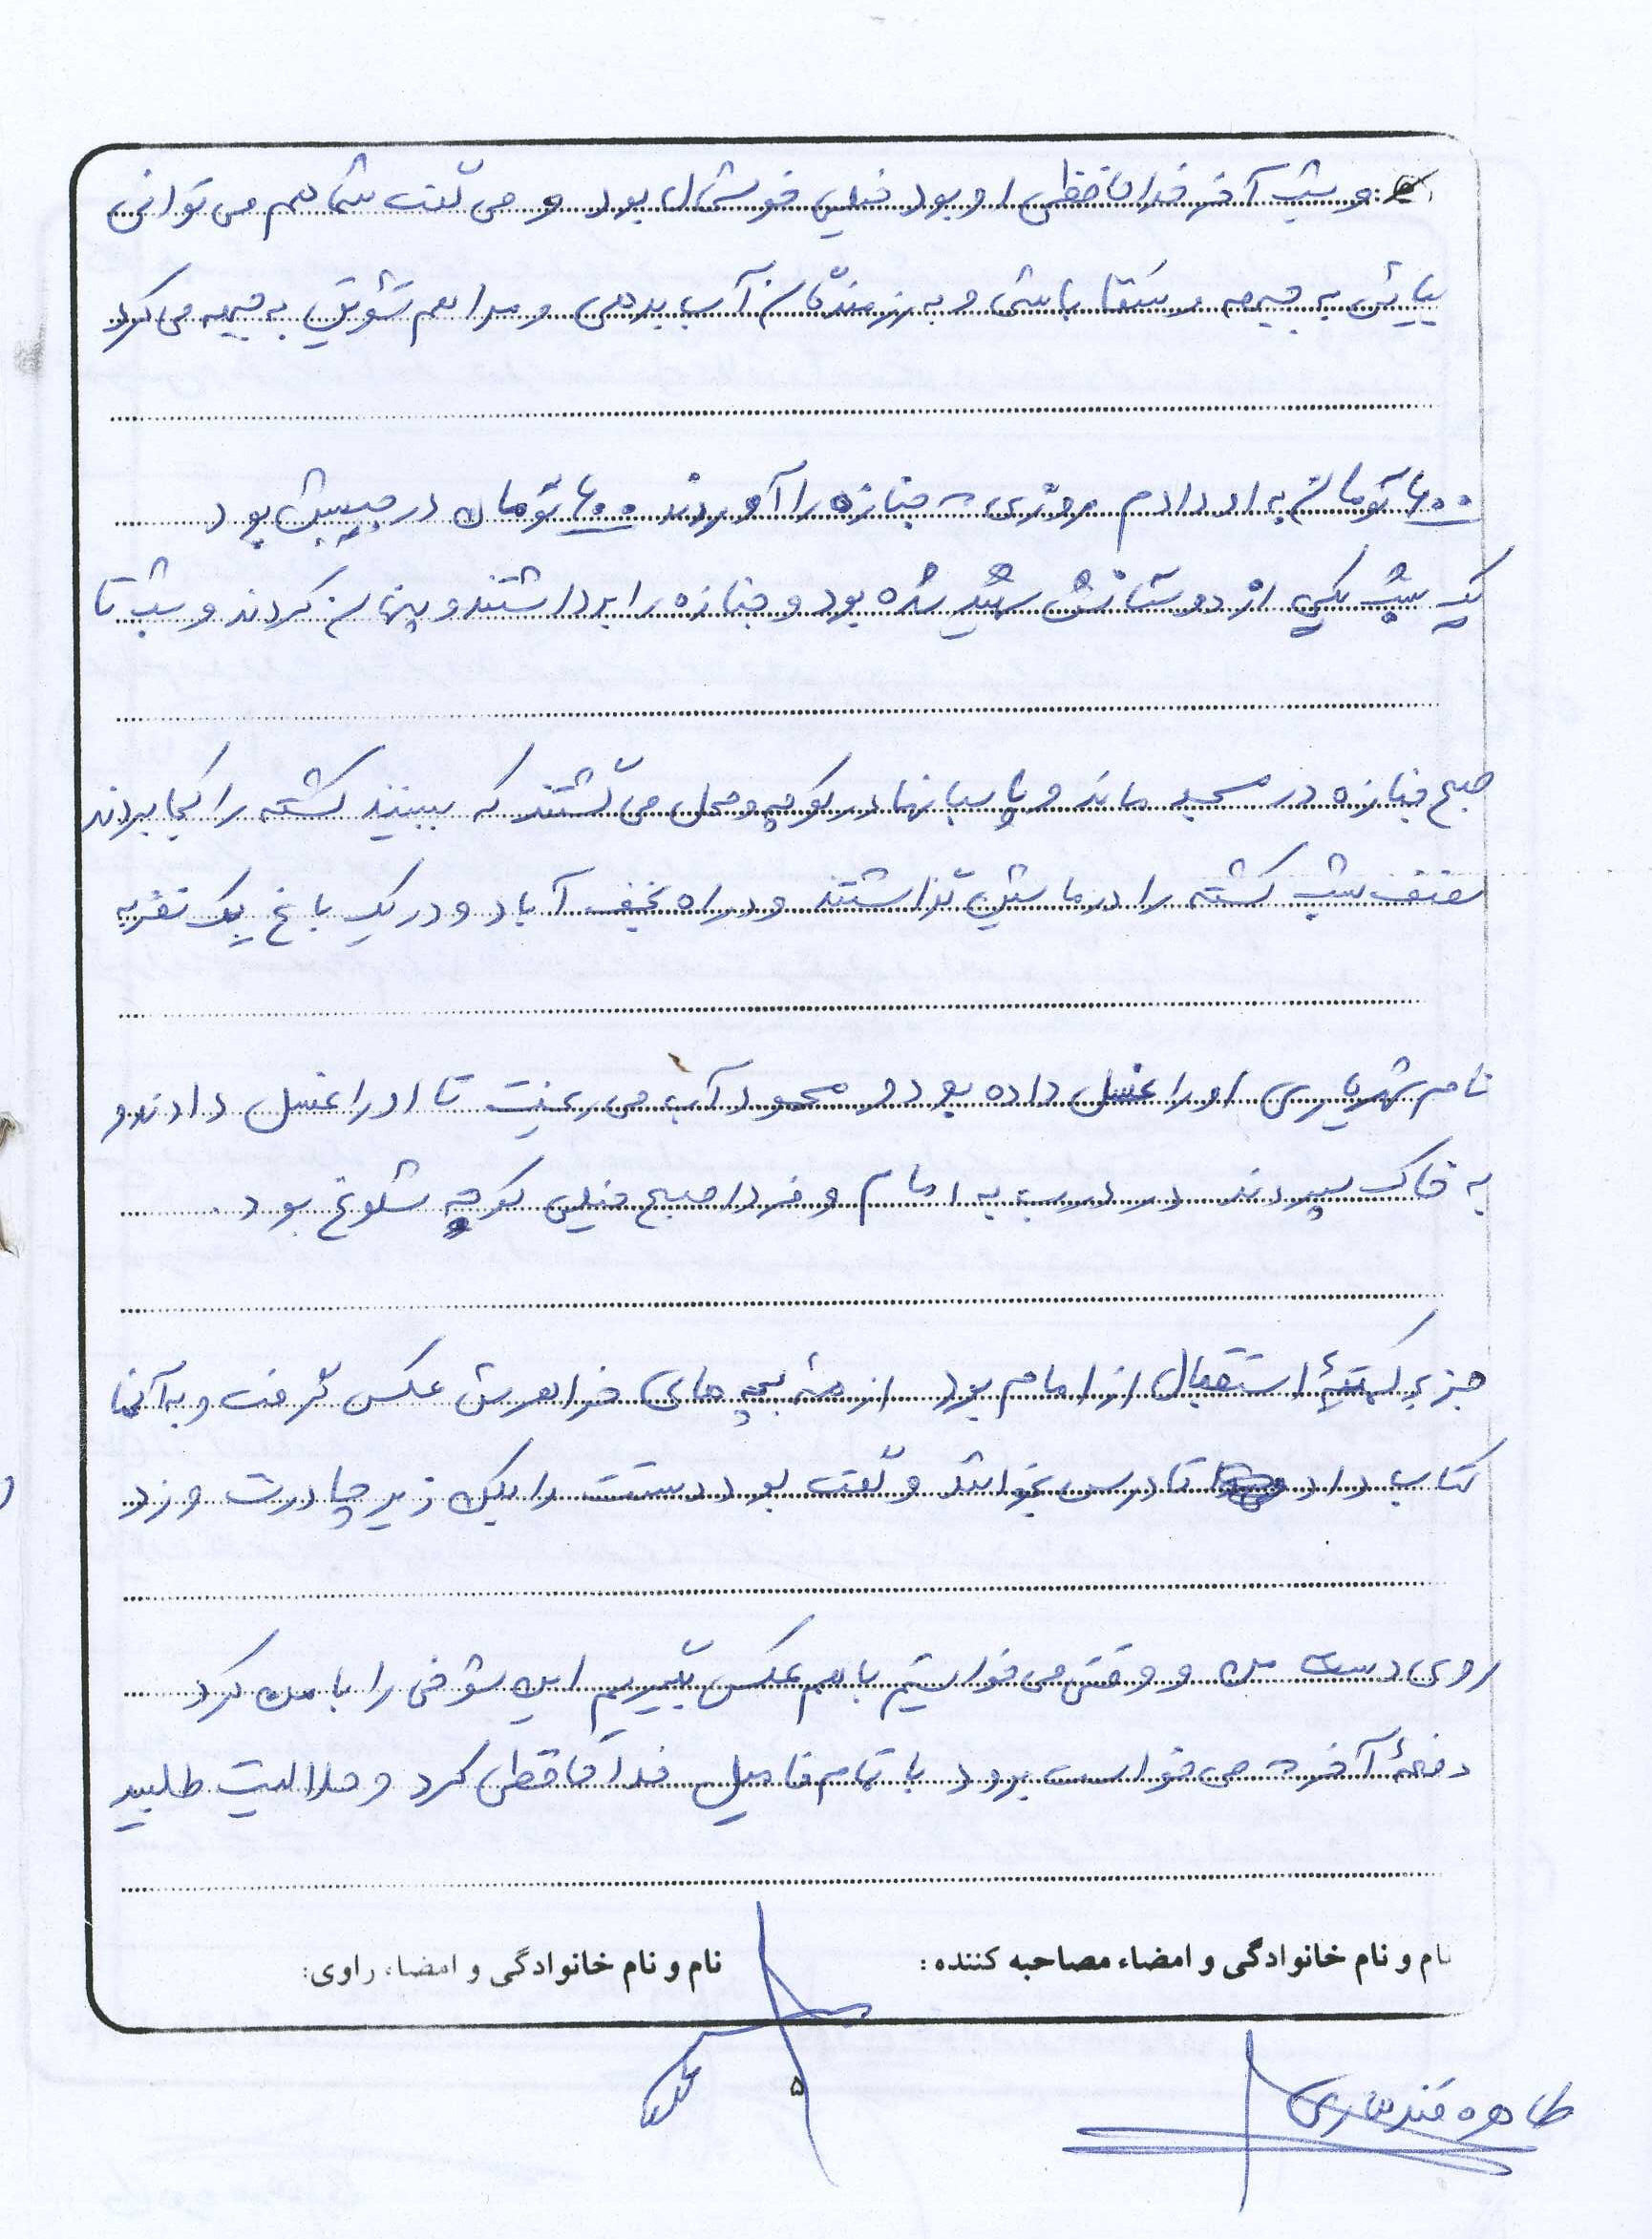 و شب آخر خداحافظی او بود خیلی خوشحال بود و می گفت شما هم می توانی
بیائی به جبهه و سقا باشی و به رزمندگان آب بدهی و مرا هم تشویق به جبهه می کرد
تومان به او دادم روزی که جنازه را آوردند تومان در جیبش بود
یک شب یکی از دوستانش شهید شده بود و جنازه را برداشتند و پنهان کردند و شب تا
صبح جنازه در مسجد ماند و پاسبانها در کوچه و محل می گشتند که ببینند کشته را کجا بردند
نصف شب کشته را در ماشین گذاشتند و در راه نجف آباد و در یک باغ یک نفر به
نام شهریاری او را غسل داده بود و محمود آب می ریخت تا او را غسل دادند و
به خاک سپردند در درب به امام و فردا صبح خیلی کوچه شلوغ بود.
جزء کمیتهٔ استقبال از امام بود از بچه های خواهرش عکس گرفت و به آنها
کتاب داد تا درس بخوانند و گفت بود دستت را بکن زیر چادرت و زد
روی دست من و وقتی می خواستیم با هم عکس بگیریم این شوخی را با من کرد
دفعهٔ آخر که می خواست برود با تمام فامیل خداحافظی کرد و حلالیت طلبید
نام و نام خانوادگی و امضاء مصاحبه کننده:
نام و نام خانوادگی و امضاء راوی:
طاهره قندهاری
۵